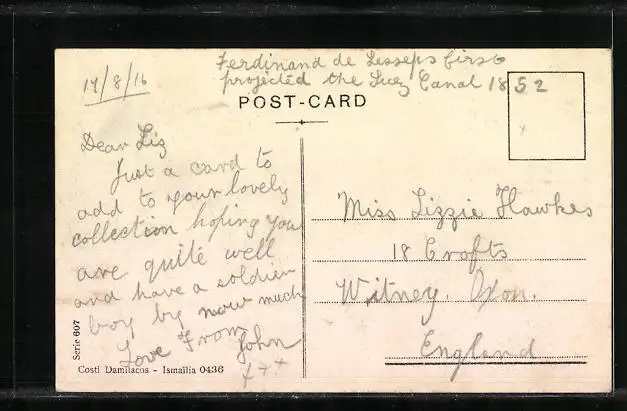 14/8/16
Ferdinand de Lesseps first
projected the Suez Canal 1852
POST-CARD
Dear Liz
Just a card to
add to your lovely
collection hoping you
are quite well
and have a soldier
boy by now much
Love From
John
x x x
Miss Lizzie Hawkes
18 Crofts
Witney. Oxon.
England
Série 607
Costi Damilacos - Ismaïlia 0436